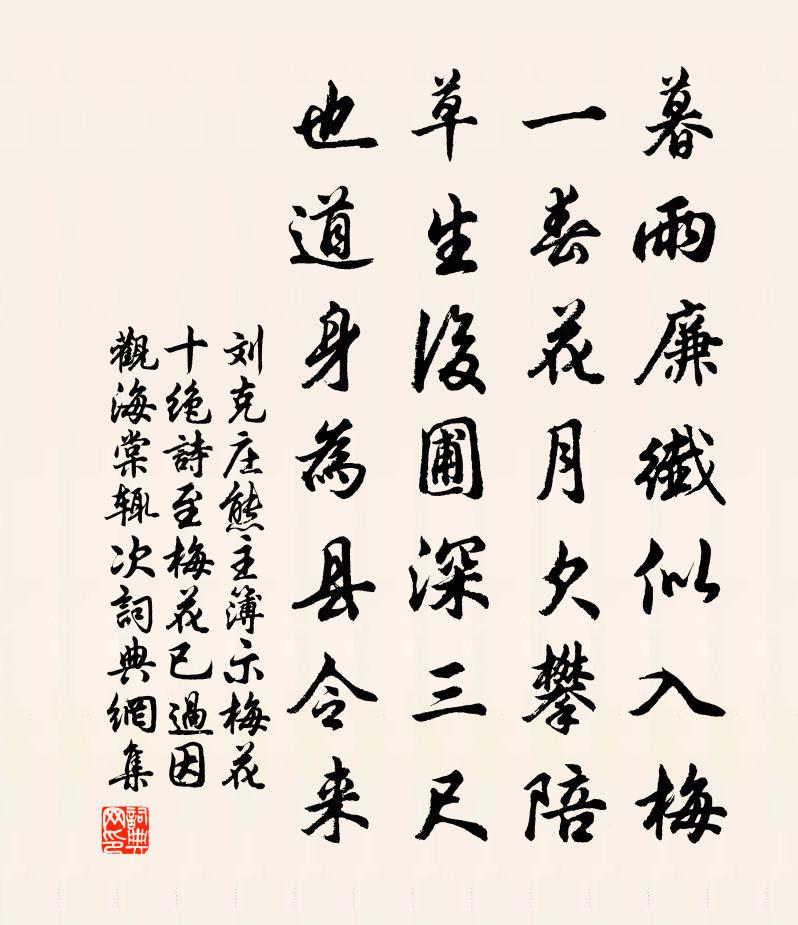 暮雨廉纖似入梅
一春花月欠攀陪
草生後圃深三尺
也道身為县令来
刘克庄熊主簿示梅花
十绝詩至梅花已過因
觀海棠辄次詞典網集
詞典网印